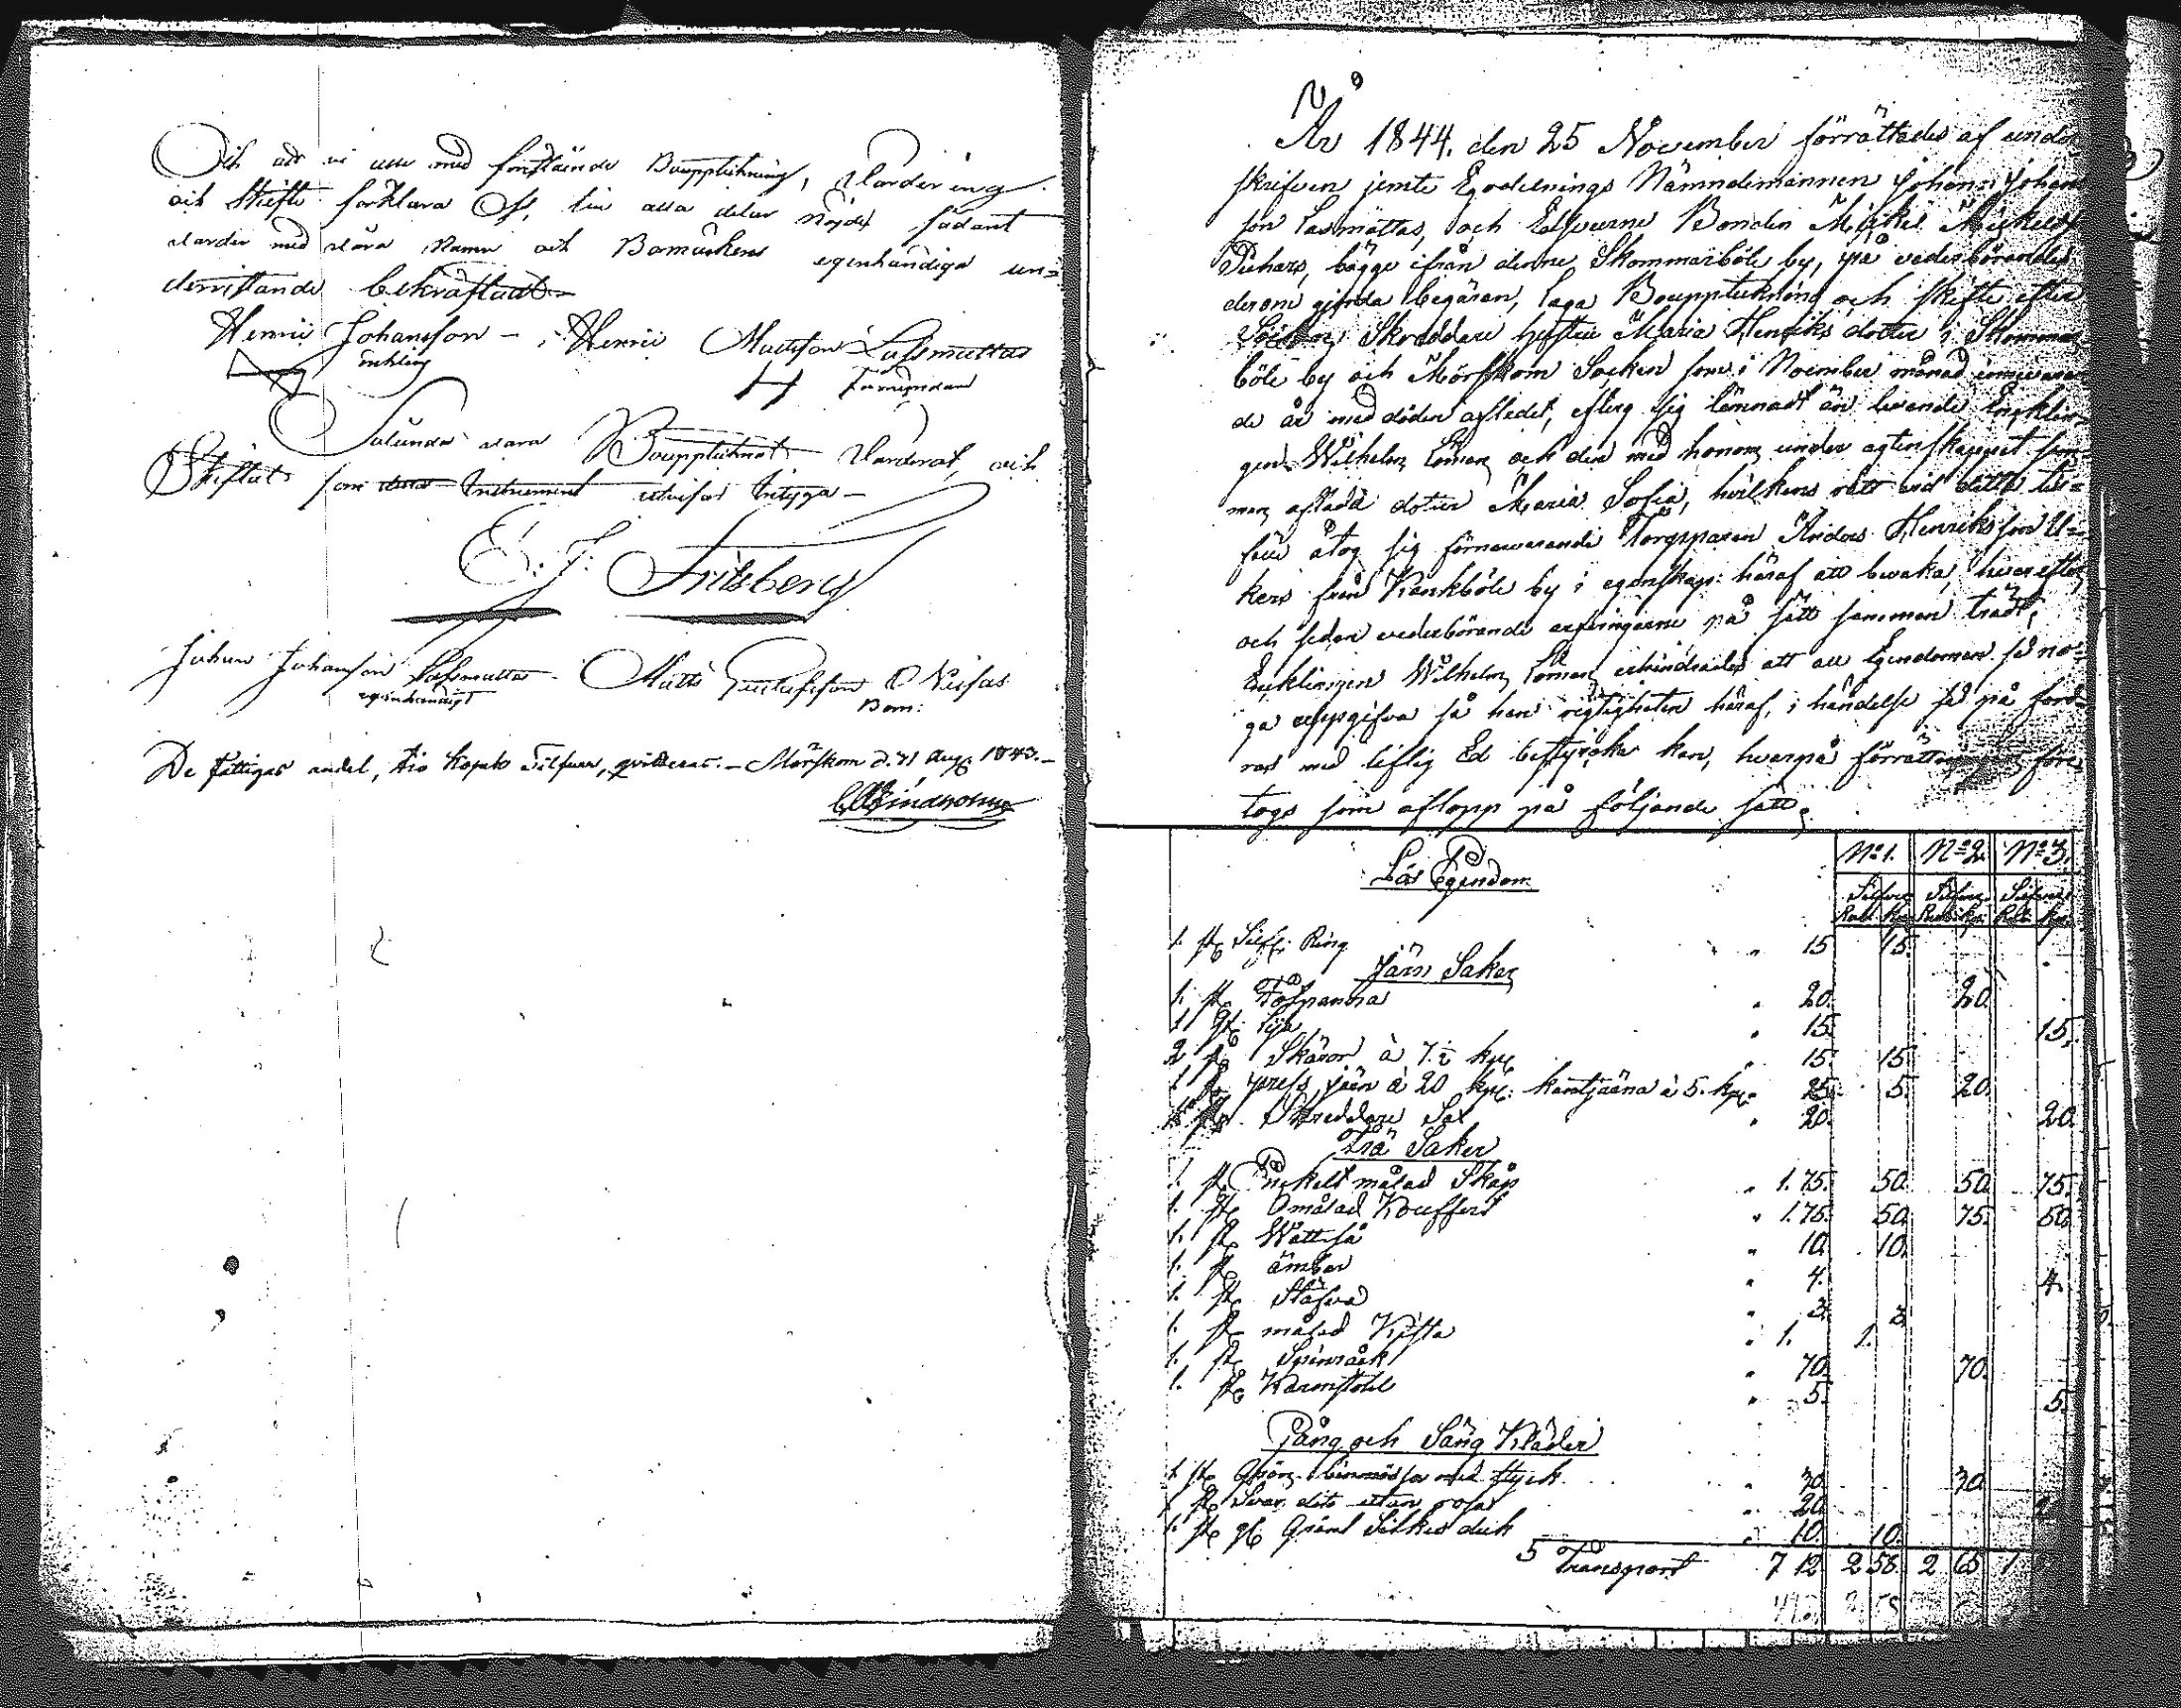 Och att vi äro med förestående Bouppteckning, Värdering
och Skifte förklara Oss till alla delar nöjde sådant
varder med våra Namn och Bomärken egenhändiga un=
derristande bekräftadt.
Henric Johansson – Henric Mattsson Lassmattas
enkling Förmyndare
Sålunda vara Bouppteknat, Värderat, och
Skiftat som detta Instrument utvisar Intyga –
E: J: Fritsberg
Johan Johansson Lassmattas Matts Gustafsson O Neifas
egenhändigt Bom:
De fattigas andel, tio kopek Silfver, qvitteras. – Mörskom d. 21 Aug. 1843. –
Lindholm
N° 9
År 1844. den 25 November förrättades af under
skrifven jemte Egodelnings Nämndemannen Johan Johans
son Lasmattas, och Edsvurne Bonden Mickel Mickels
bägge ifrån denne Skommarböle by, på vederbörandes
derom gjorda begäran, laga Bouppteckning och skifte efter
Skreddare hustru Maria Henriks dotter i Skommar
böle by och Mörskom Socken som i November månad innevaran
de år med döden afledet, efter sig lämnadt än levande Enklin
gen Wilhelm Löman och den med honom under ägtenskappet sam=
man aflade dotter Maria Sofia, hvilkens rätt vid detta till=
fälle åtog sig förnärvarande Torpparen Anders Henriksson U=
kers från Kankböle by i egenskap häraf att bevaka, hvarefter
och sedan vederbörande arfvingarne på sätt samman trädt,
Enklingen Wilhelm Löman erhindrades att all Egendomen så no=
ga uppgifva så han rigtigheten häraf, i händelse så på ford=
ras med liflig Ed bestyrcka kan, hvarpå förrättningen före
togs som aflopp på följande sätt;
Lös Egendom N° 1. N° 2. N° 3.
Silfver Silfver Silfver
Rub: Kop: Rub: Kop: Rub: Kop:
1. st Silf: Ring " 15 15.
Järn Saker
1. st Fotpanna " 20. 20.
1 st Lija " 15. 15.
2 st Skäror à 7 ½ kop " 15. 15.
1 st press järn à 20 kop: kantjärna à 5. kop " 25. 5. 20.
1 st Skreddare Sax " 20. 20.
Trä Saker
1. st Enkelt målad Skåp " 1.75. 50. 50. 75.
1. st Omålad Kouffert " 1.75. 50. 75. 50.
1. st Wattuså " 10. 10.
1. st ämbar " 4. 4.
1. st Stäfva " 3. 3.
1. st målad Kista " 1. 1.
1. st Spinråck " 70. 70.
1. st Karmstohl " 5. 5.
Gång och Säng Kläder
1. st Grön binmössa med styck " 30. 30.
1 st Svar. dito utan rosa " 20.
1. st gl. Grönt Silkes duk " 10. 10.
5 Transport 7 12. 2 58. 2 65 1